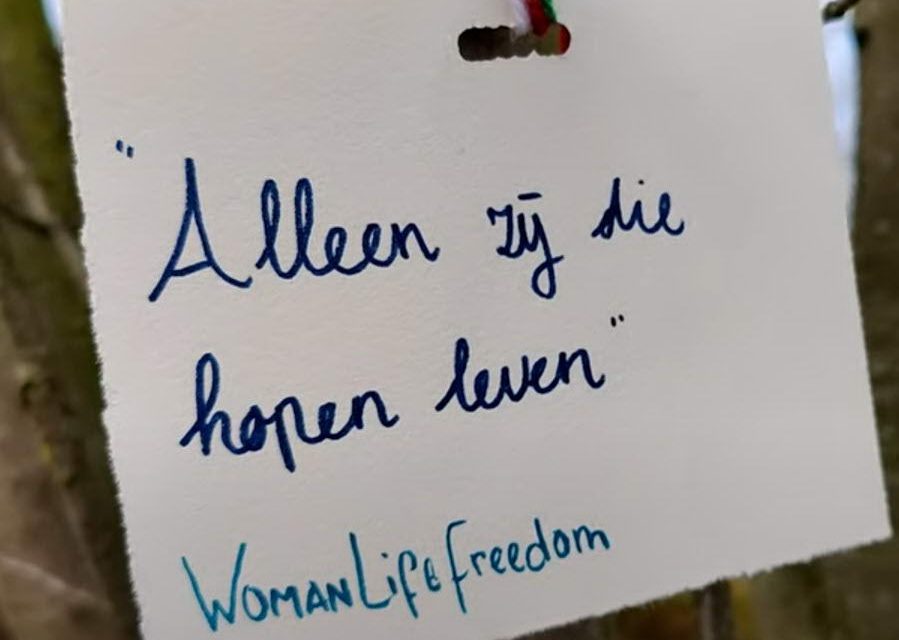 "Alleen zij die
hopen leven"
WOMANLifeFreedom